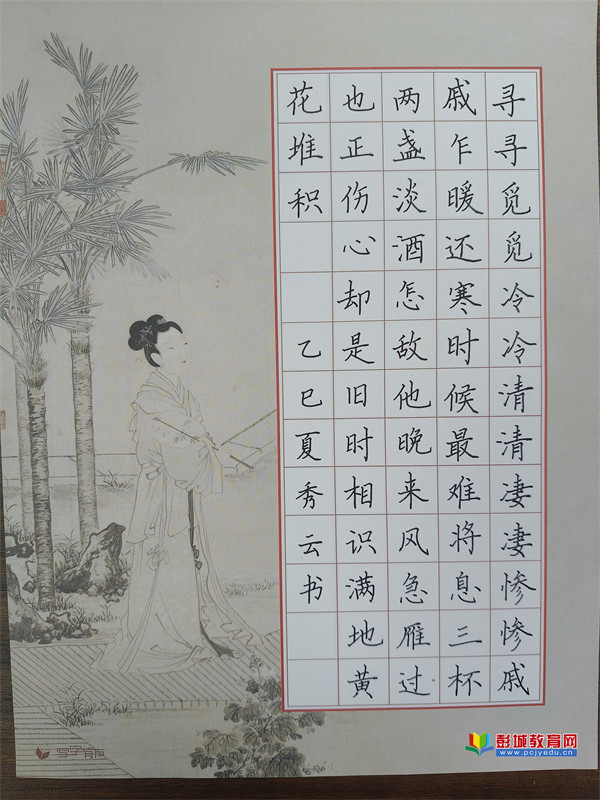 寻寻觅觅冷冷清清凄凄惨惨戚
戚乍暖还寒时候最难将息三杯
两盏淡酒怎敌他晚来风急雁过
也正伤心却是旧时相识满地黄
花堆积
乙巳夏秀云书
写字有风
彭城教育网
www.pcjyedu.cn